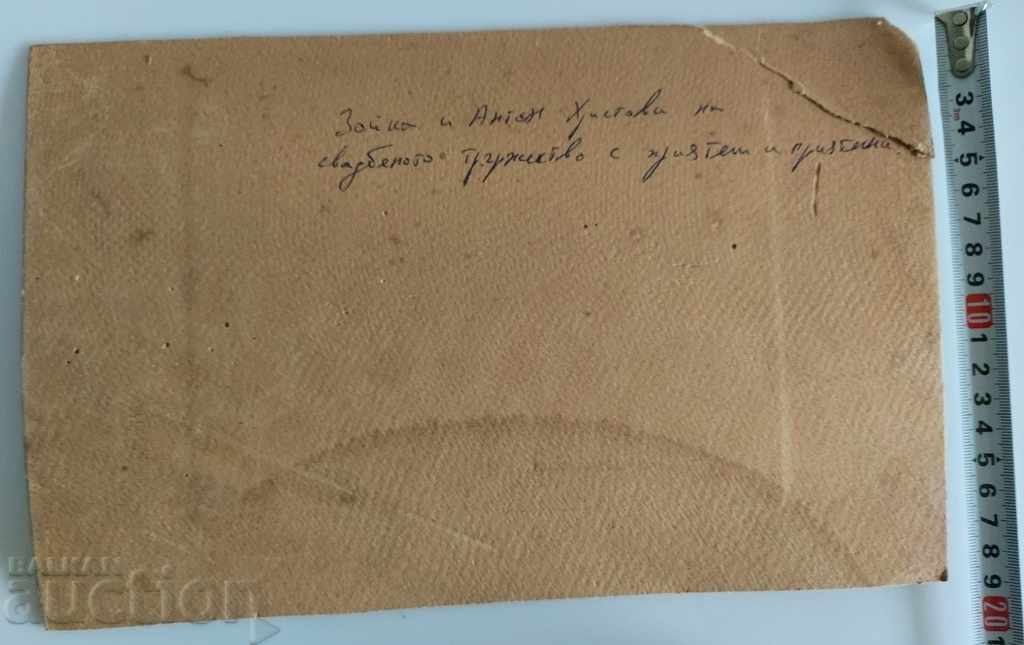 Зойка и Антон Христови на
сватбеното тържество с приятели и приятелки.
3
4
5
6
7
8
9
10
1
2
3
4
5
6
7
8
9
20
1
БАЛКАН
auction